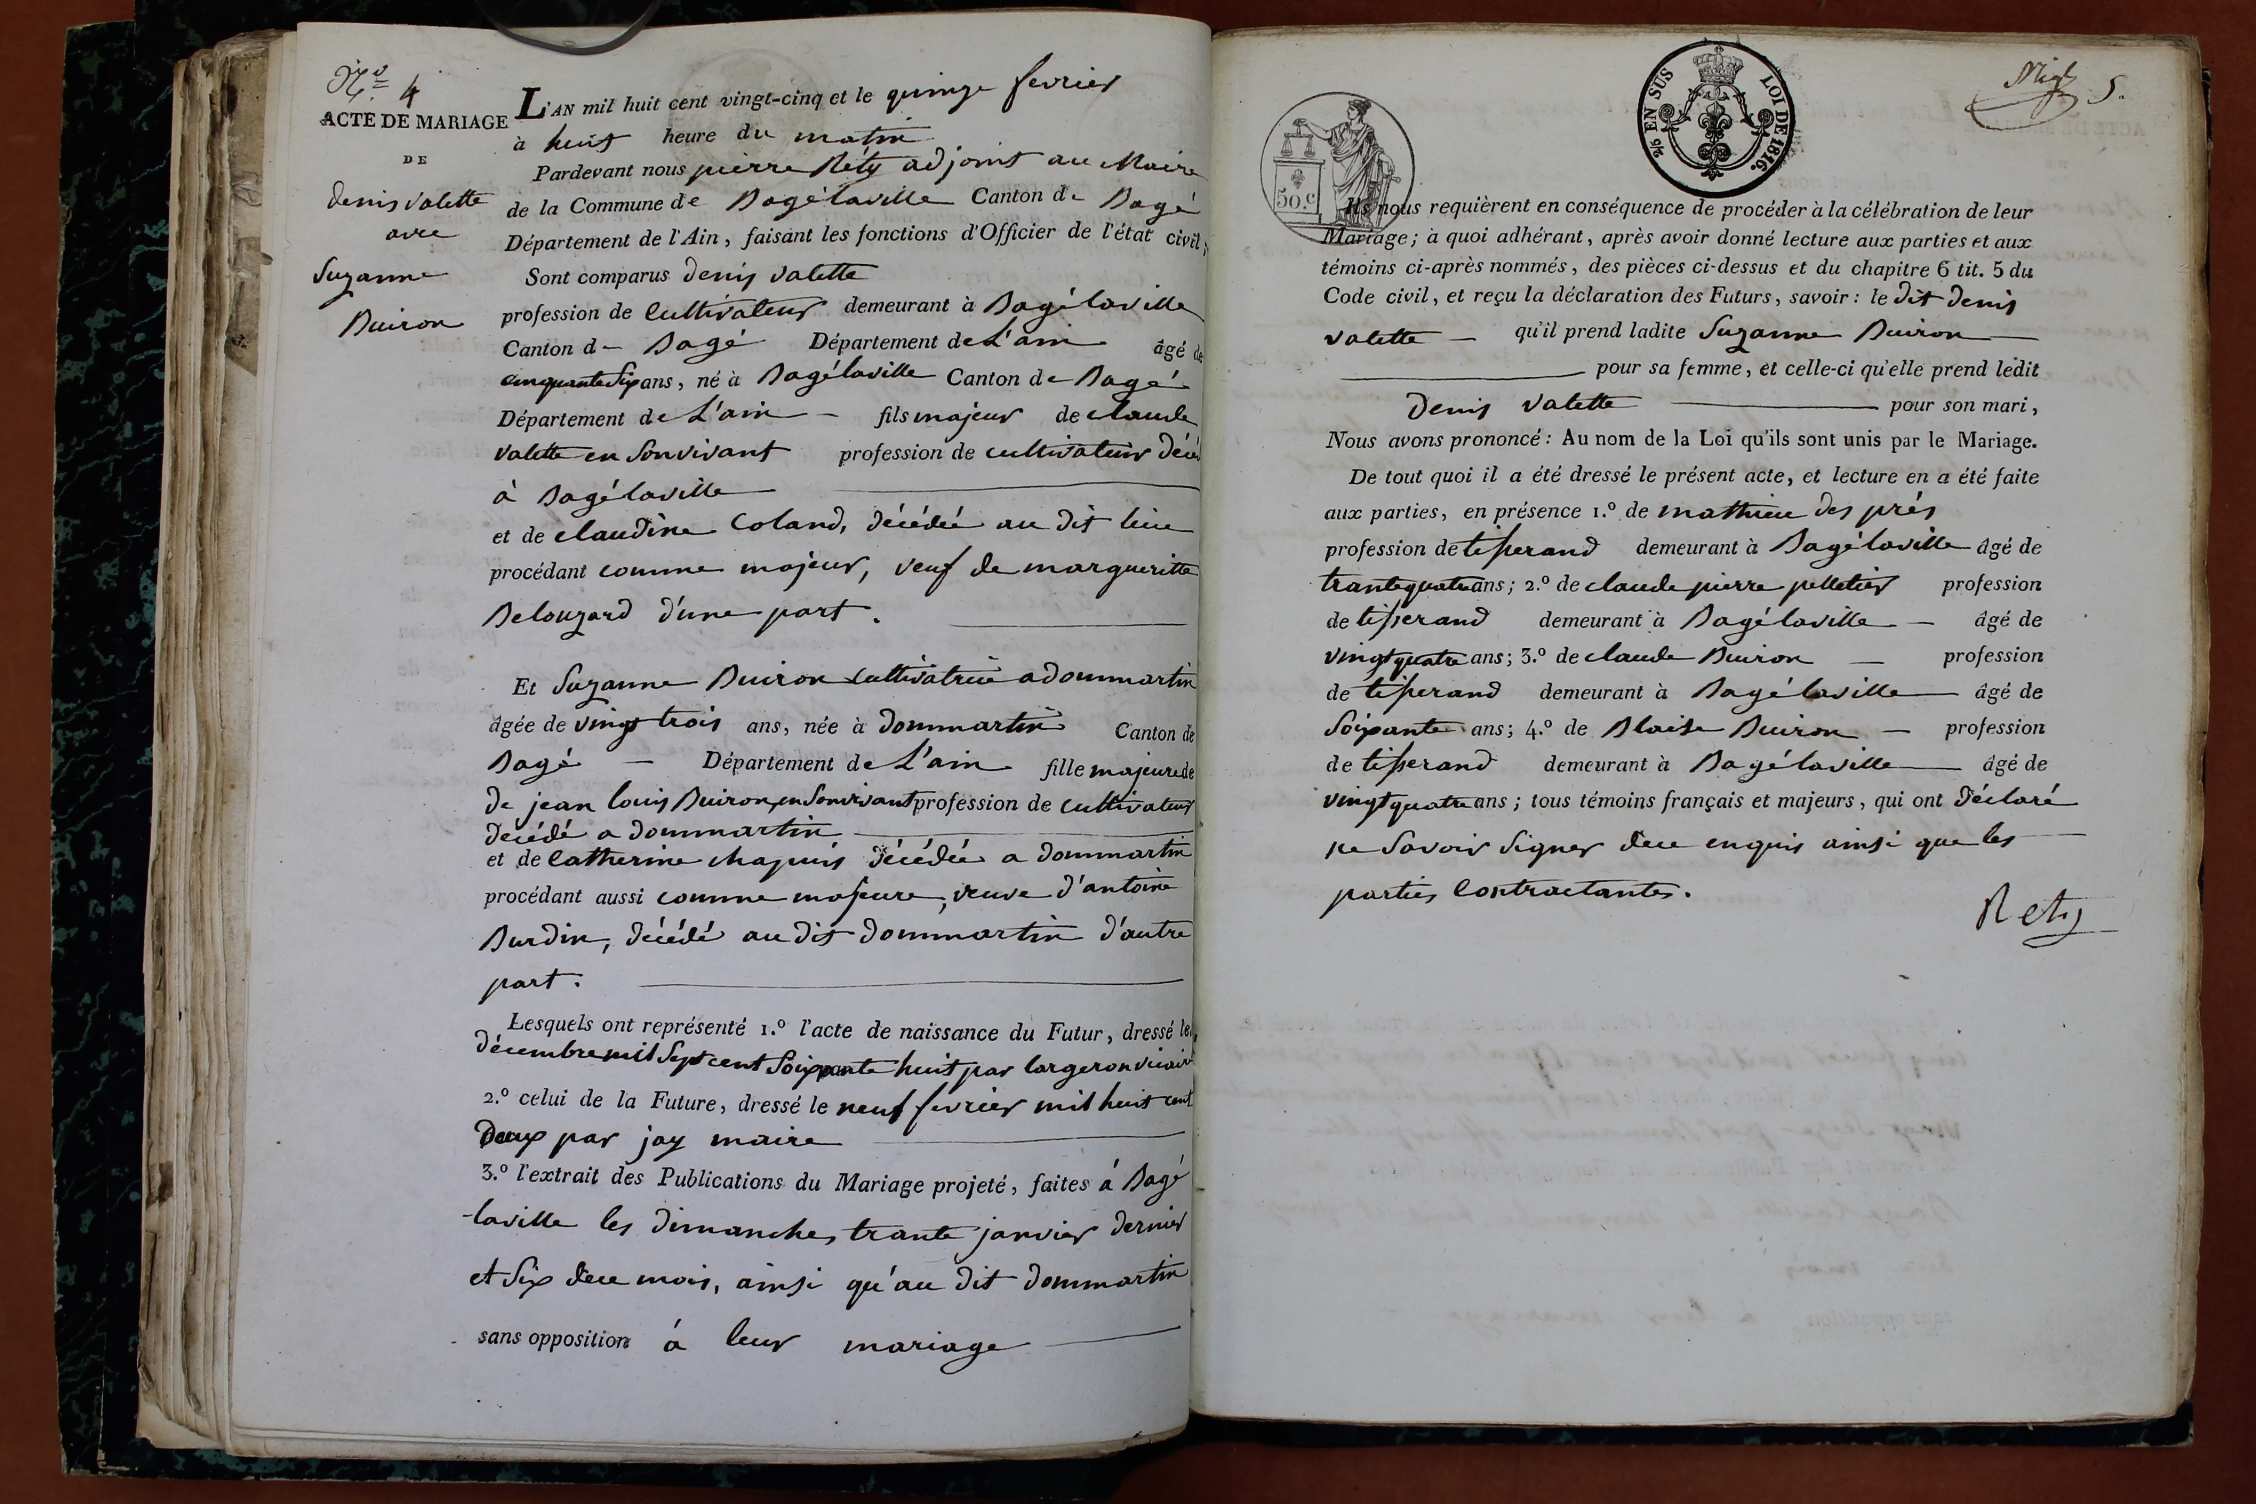 N.º 4
ACTE DE MARIAGE
DE
denis valette
avec
Suzanne
Buiron
L'AN mil huit cent vingt-cinq et le quinze fevrier
à huit heure du matin
Pardevant nous pierre Réty adjoint au Maire
de la Commune de Bagélaville Canton de Bagé
Département de l'Ain, faisant les fonctions d'Officier de l'état civil,
Sont comparus denis valette
profession de cultivateur demeurant à Bagélaville
Canton de Bagé Département de L'ain âgé de
cinquante six ans, né à Bagélaville Canton de Bagé
Département de L'ain fils majeur de claude
valette en Son vivant profession de cultivateur
à Bagélaville
et de claudine Coland, décédée au dit lieu
procédant comme majeur, veuf de margueritte
Belouzard d'une part.
Et Suzanne Buiron cultivatrice a dommartin
âgée de vingt trois ans, née à dommartin Canton de
Bagé Département de L'ain fille majeure de
de jean louis Buiron, en Son vivant profession de cultivateur
décédé a dommartin
et de Catherine chapuis décédée a dommartin
procédant aussi comme majeure, veuve d'antoine
Burdin, décédé au dit dommartin d'autre
part.
Lesquels ont représenté 1.º l'acte de naissance du Futur, dressé le
décembre mil Sept cent Soixante huit par largeron vicaire
2.º celui de la Future, dressé le neuf fevrier mil huit cent
deux par jay maire
3.º l'extrait des Publications du Mariage projeté, faites à Bagé
-laville les dimanches trante janvier dernier
et Six du ce mois, ainsi qu'au dit dommartin
sans opposition à leur mariage
50.c
2/5 EN SUS LOI DE 1816.
5.
Ils nous requièrent en conséquence de procéder à la célébration de leur
Mariage; à quoi adhérant, après avoir donné lecture aux parties et aux
témoins ci-après nommés, des pièces ci-dessus et du chapitre 6 tit. 5 du
Code civil, et reçu la déclaration des Futurs, savoir: le dit denis
valette qu'il prend ladite Suzanne Buiron
pour sa femme, et celle-ci qu'elle prend ledit
denis valette pour son mari,
Nous avons prononcé: Au nom de la Loi qu'ils sont unis par le Mariage.
De tout quoi il a été dressé le présent acte, et lecture en a été faite
aux parties, en présence 1.º de mathieu des prés
profession de tisserand demeurant à Bagélaville âgé de
trante quatre ans; 2.º de claude pierre pelletier profession
de tisserand demeurant à Bagélaville âgé de
vingt quatre ans; 3.º de claude Buiron profession
de tisserand demeurant à Bagélaville âgé de
Soixante ans; 4.º de Blaise Buiron profession
de tisserand demeurant à Bagélaville âgé de
vingt quatre ans; tous témoins français et majeurs, qui ont déclaré
ne Savoir Signer de ce enquis ainsi que les
parties Contractantes.
Rety